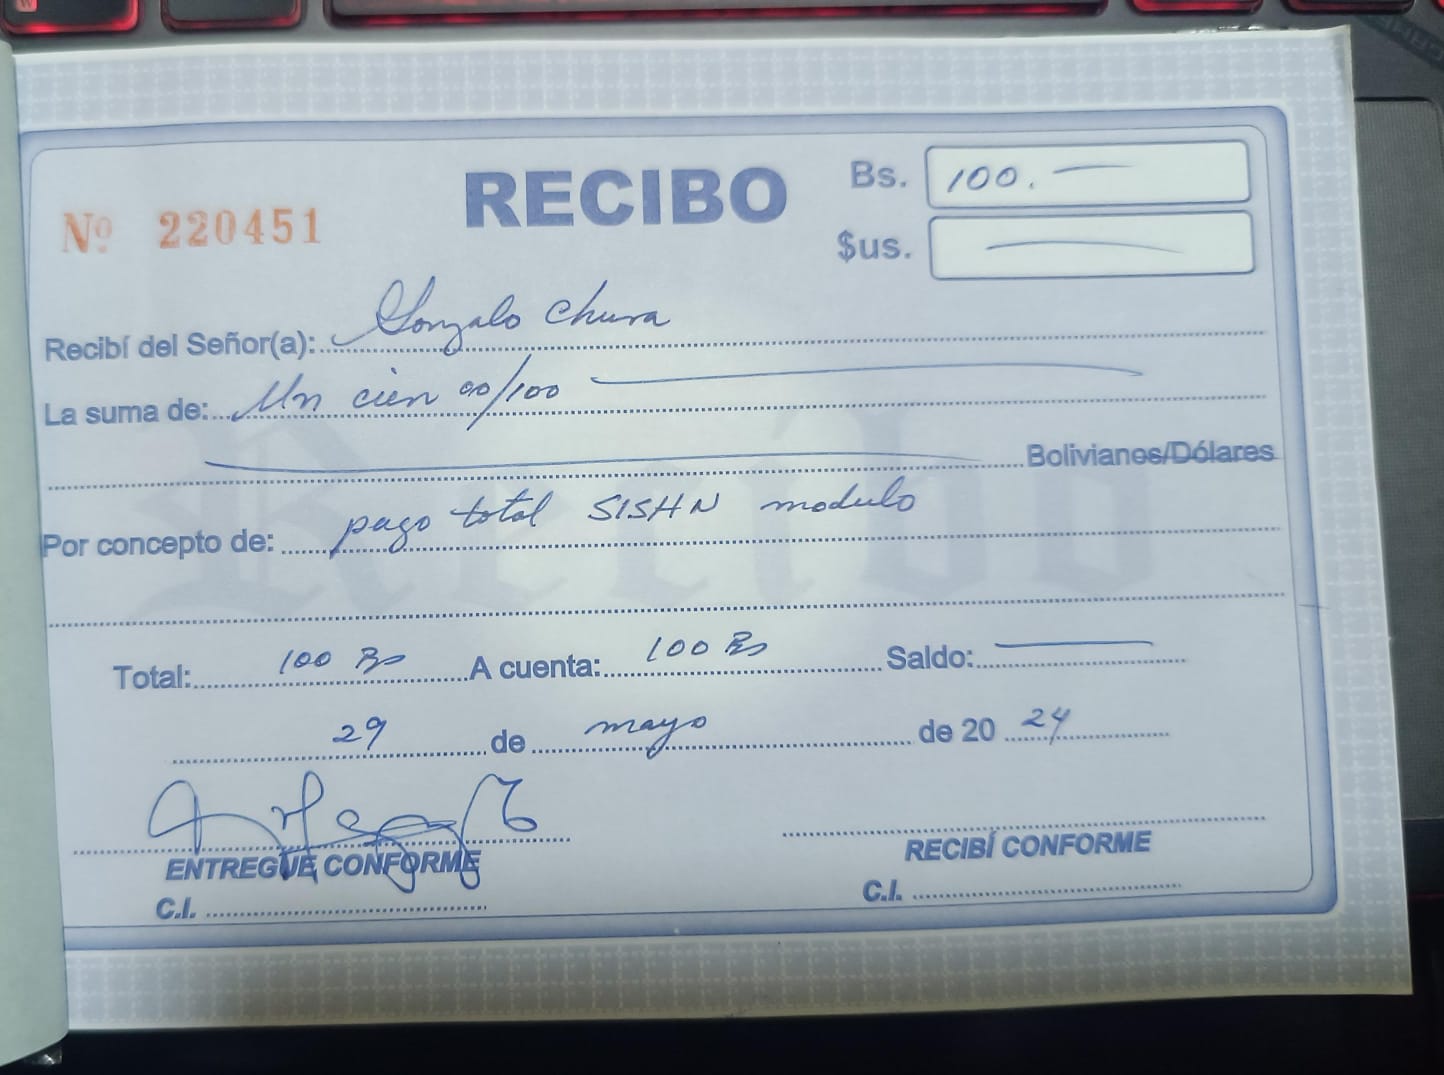 RECIBO
Bs. 100.
Nº 220451
$us.
Recibí del Señor(a): Gonzalo Chura
La suma de: Un cien 00/100
Bolivianos/Dólares
Por concepto de: pago total SISHN modulo
Total: 100 Bs A cuenta: 100 Bs Saldo:
29 de mayo de 20 24
ENTREGUE CONFORME
RECIBÍ CONFORME
C.I.
C.I.